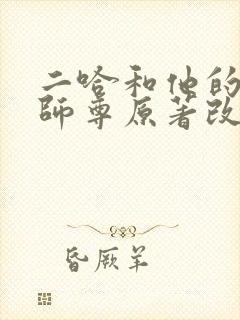 二哈和他的
師尊原著改
昏厥羊